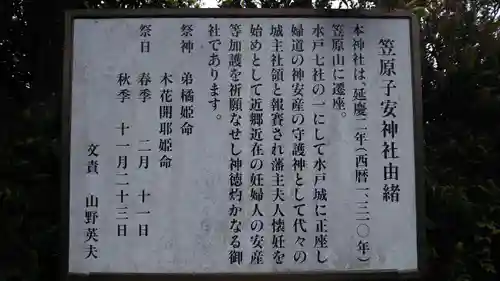 笠原子安神社由緒
本神社は、延慶二年（西暦一、三一〇年）
笠原山に遷座。
水戸七社の一にして水戸城に正座し
婦道の神安産の守護神として代々の
城主社領と報賽され藩主夫人懐妊を
始めとして近郷近在の妊婦人の安産
等加護を祈願なせし神徳灼かなる御
社であります。
祭神　弟橘姫命
木花開耶姫命
祭日　春季　二月　十一日
秋季　十一月二十三日
文責　山野英夫